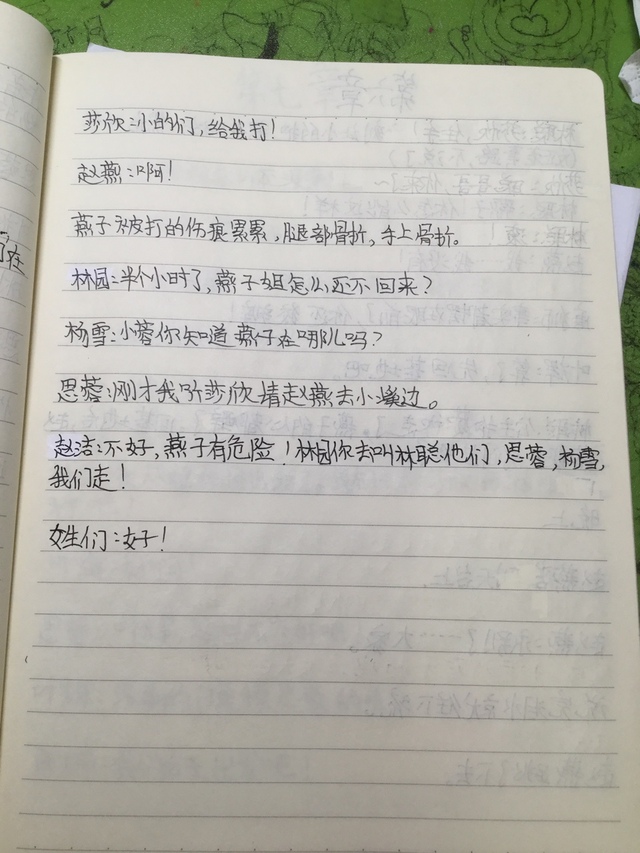 莎欣:小的们,给我打!
赵燕:啊!
燕子被打的伤痕累累,腿部骨折,手上骨折。
林园:半个小时了,燕子姐怎么还不回来?
杨雪:小蓉你知道燕子在哪儿吗?
思蓉:刚才我听莎欣请赵燕去小溪边。
赵洁:不好,燕子有危险!林园你去叫林聪他们,思蓉,杨雪,
我们走!
女生们:好!
在